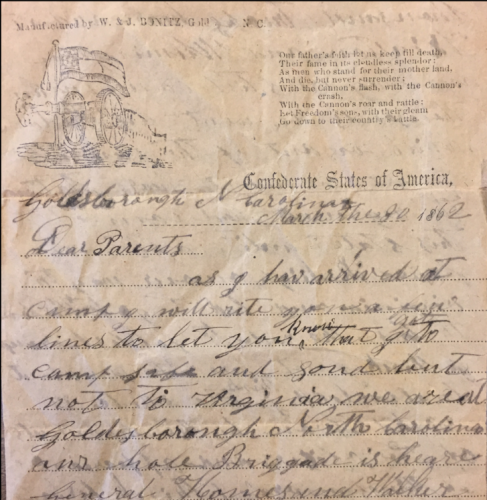 Manufactured by W. & J. BONITZ, Gold N. C.
Our father's faith let us keep till death,
Their fame in its cloudless splendor;
As men who stand for their mother land,
And die, but never surrender;
With the Cannon's flash, with the Cannon's
crash,
With the Cannon's roar and rattle;
Let Freedom's sons, with their
Go down to their country's battle.
Confederate States of America,
Goldsborough N Carolina
March the 20 1862
Dear Parents
as I hav arrived at
camp I will rite you a few
lines to let you know that I got to
camp safe and sond but
not to Virginia, we are at
Goldesborough North Carolina
our hole Briggad is heare
General Homes and